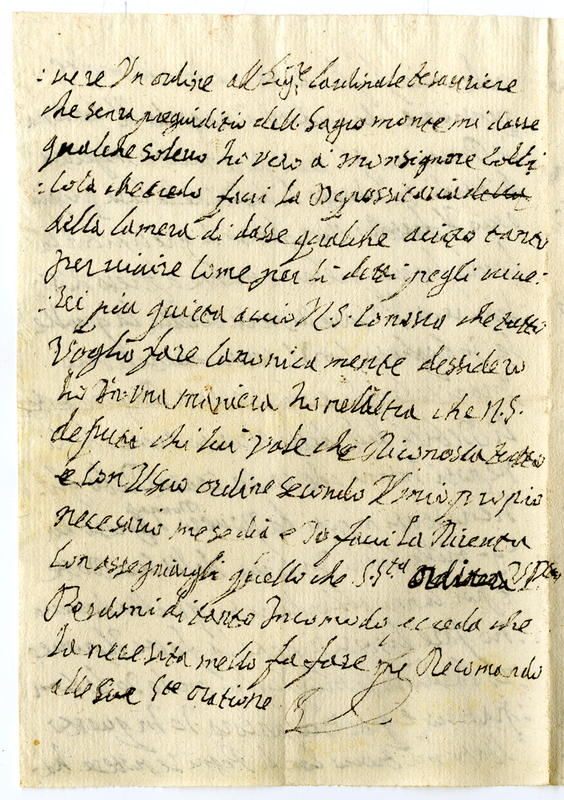 :vere Un ordine all Sig.re Cardinale tesauriere
che senza pregiuditio dell Sagro monte mi dasse
qualche solevo ho vero a monsignore Colli
:cola che credo facci la Depossitaria della
della Camera di dasse qualche aciuto tanto
per vivire Come per li detti pegli vive:
:rei piu quieta accio N.S. Conosca che tutto
Voglio fare Canonica mente dessidero
ho In una maniera ho nell altra che N.S.
deputi chi lui Vole che Riconosca tutto
e Con Il Suo ordine secondo Il mio proprio
necesario me se dia e Io facci la Ricevuta
Con assegniargli quello che S.S.tà ordinera
Perdoni di tanto Incomodo, e creda che
la necesita mello fa fare, e me Recomando
alle Sue S.te oratione